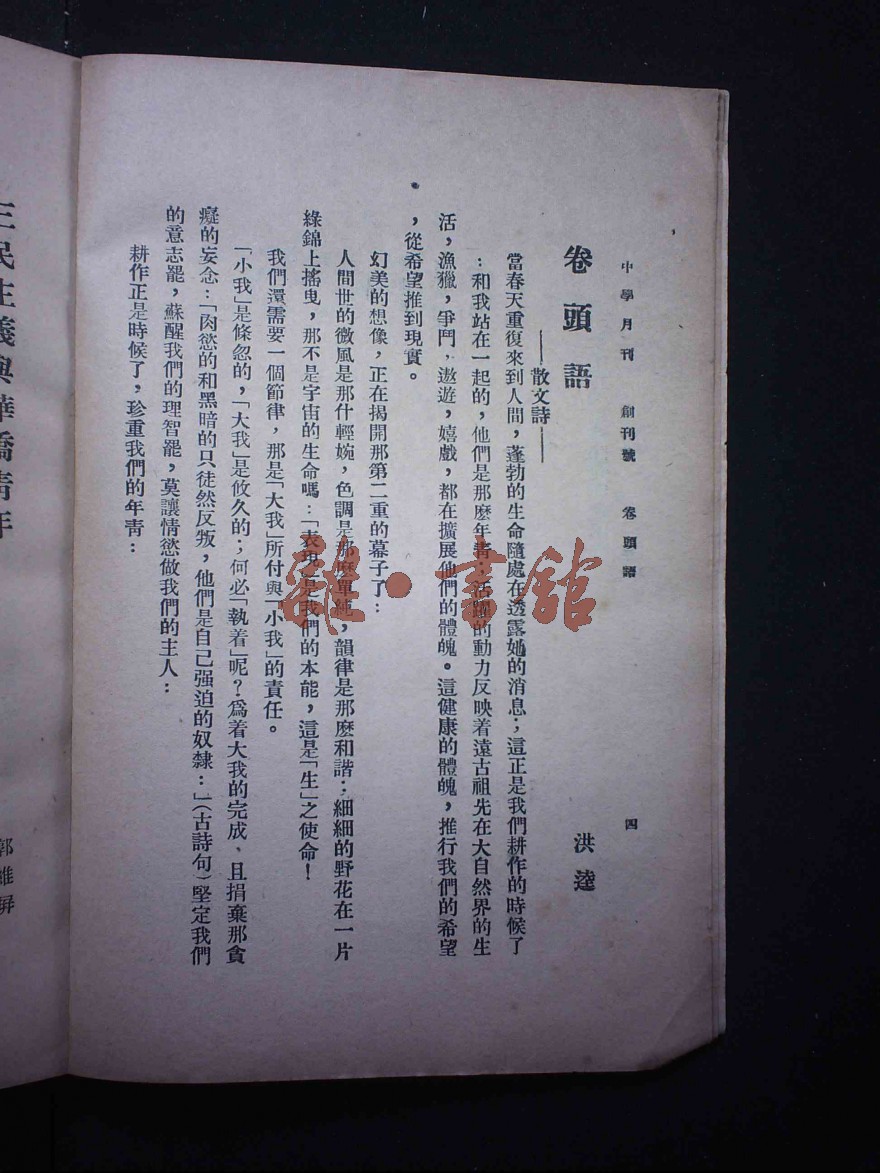 中學月刊 創刊號 卷頭語 四
卷頭語 洪逵
——散文詩——
當春天重復來到人間，蓬勃的生命隨處在透露她的消息；這正是我們耕作的時候了
：和我站在一起的，他們是那麽年青；活躍的動力反映着遠古祖先在大自然界的生
活，漁獵，爭鬥，遨遊，嬉戲，都在擴展他們的體魄。這健康的體魄，推行我們的希望
，從希望推到現實。
幻美的想像，正在揭開那第二重的幕子了：
人間世的微風是那什輕婉，色調是那麽單純，韻律是那麽和諧；細細的野花在一片
綠錦上搖曳，那不是宇宙的生命嗎：「表現」是我們的本能，這是「生」之使命！
我們還需要一個節律，那是「大我」所付與「小我」的責任。
「小我」是條忽的，「大我」是攸久的；何必「執着」呢？爲着大我的完成、且捐棄那貪
癡的妄念：「肉慾的和黑暗的只徒然反叛，他們是自己强迫的奴隸：」（古詩句）堅定我們
的意志罷，蘇醒我們的理智罷，莫讓情慾做我們的主人：
耕作正是時候了，珍重我們的年青：
三民主義與華僑青年
郭維屏
雜·書館